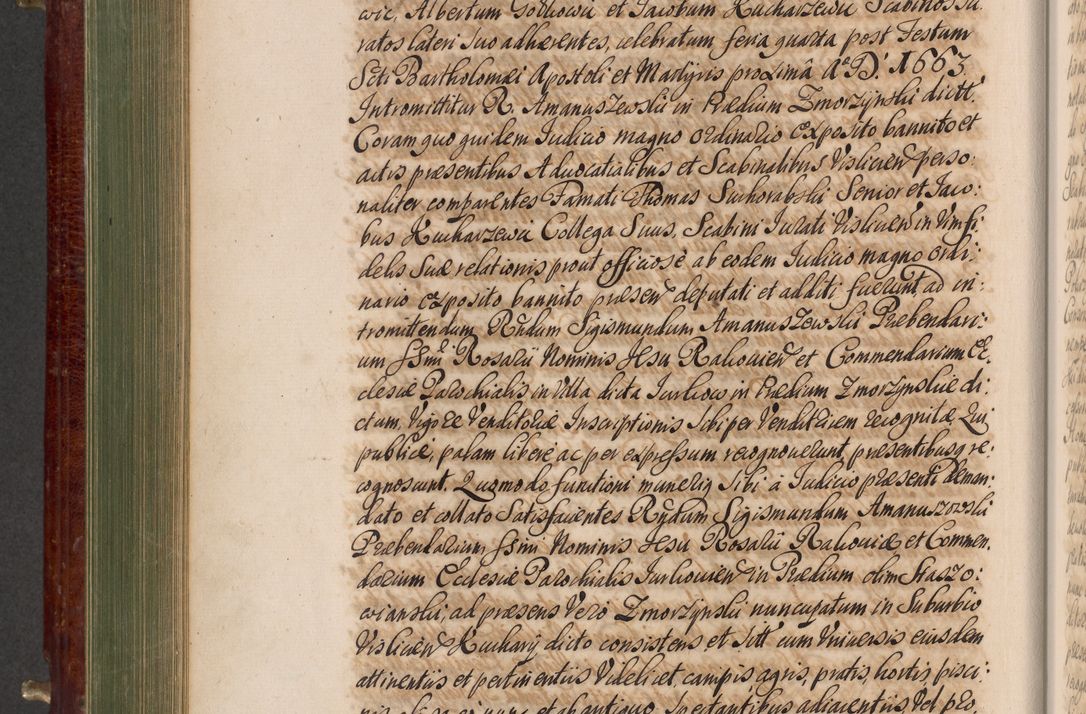 wic, Albertum Golkowic et Jacobum Kucharzewic Scabinos Ju:
ratos lateri suo adhærentes, celebratum feria quarta post Festum
Scti Bartholomæi Apostoli et Martyris proximâ A° D' 1663.
Intromittitur R. Amanuszewski in Prædium Zmorzynski dictt.
Coram quo quidem Iudicio magno ordinario exposito bannito et
actis præsentibus Advocatialibus et Scabinalibus Visliciens perso:
naliter comparentes Famati Thomas Suchorabski Senior et Jaco:
bus Kucharzewic Collega Suus, Scabini Jurati Vislicien in Vim fi:
delis suæ relationis prout officiosè ab eodem Iudicio magno ordi:
nario exposito bannito præsen deputati et additi fuerunt, ad in:
tromittendum Rndum Sigismundum Amanuszewski Præbendari:
um SSmi Rosarii Nominis Jesu Rakovien et Commendarium Ec:
clesiæ Parochialis in Villa dicta Jurkow in Prædium Zmorzynskie di:
ctum, Vigore Venditoriæ Inscriptionis sibi per Venditricem recognitæ, Qui
publicè, palam liberè ac per expressum recognoverunt, præsentibusq re:
cognoscunt. Quomodo functioni muneriq sibi à Iudicio præsenti deman:
dato et collato Satisfacientes Rndum Sigismundum Amanuszowski
Præbendarium SSmi Nominis Jesu Rosarii Rakoviæ et Commen:
darium Ecclesiæ Parochialis Jurkovien in Prædium olim Staszo:
wianski, ad præsens Vero Zmorzynski nuncupatum in Suburbio
Vislicien Kuchary dicto consistens et sitt cum Universis eiusdem
attinentiis et pertinentiis Videlicet campis agris, pratis, hortis, pisci:
nis et ab antiquo Spectantibus adiacentiis Vel pro